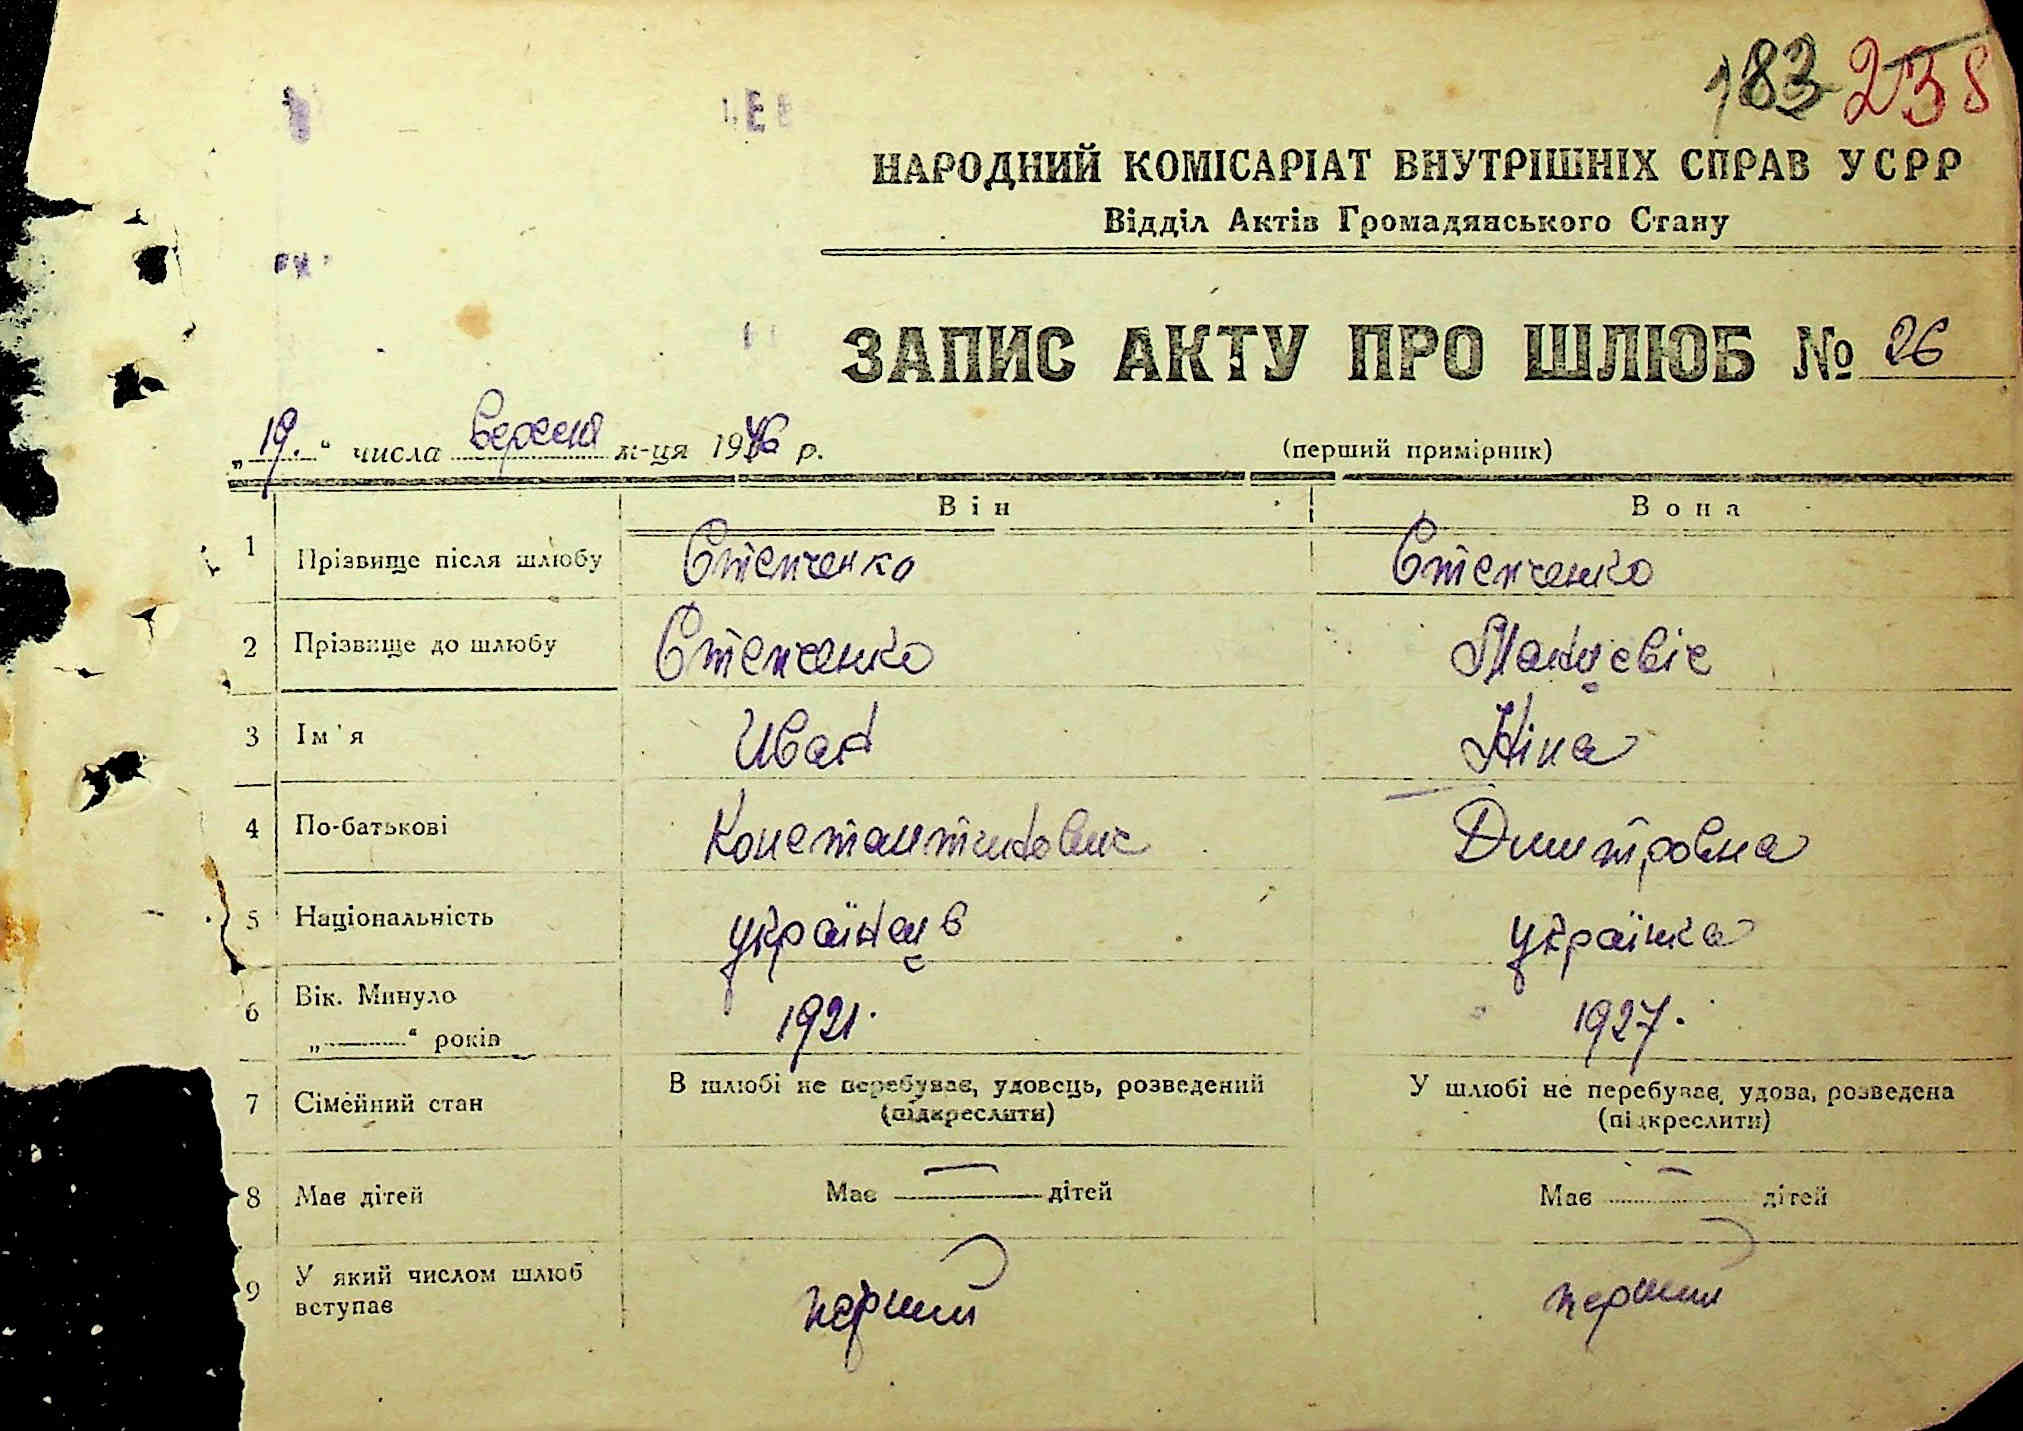 183 238
НАРОДНИЙ КОМІСАРІАТ ВНУТРІШНІХ СПРАВ УСРР
Відділ Актів Громадянського Стану
ЗАПИС АКТУ ПРО ШЛЮБ № 26
„19." числа вересня м-ця 1946 р. (перший примірник)
Він Вона
1 Прізвище після шлюбу Степченко Степченко
2 Прізвище до шлюбу Степченко
3 Ім'я Иван Ніна
4 По-батькові Константинович Дмитровна
5 Національність українець українка
6 Вік. Минуло 1921. 1927.
„ " років
7 Сімейний стан В шлюбі не перебуває, удовець, розведений У шлюбі не перебуває, удова, розведена
(підкреслити) (підкреслити)
8 Має дітей Має — дітей Має — дітей
9 У який числом шлюб перший перший
вступає